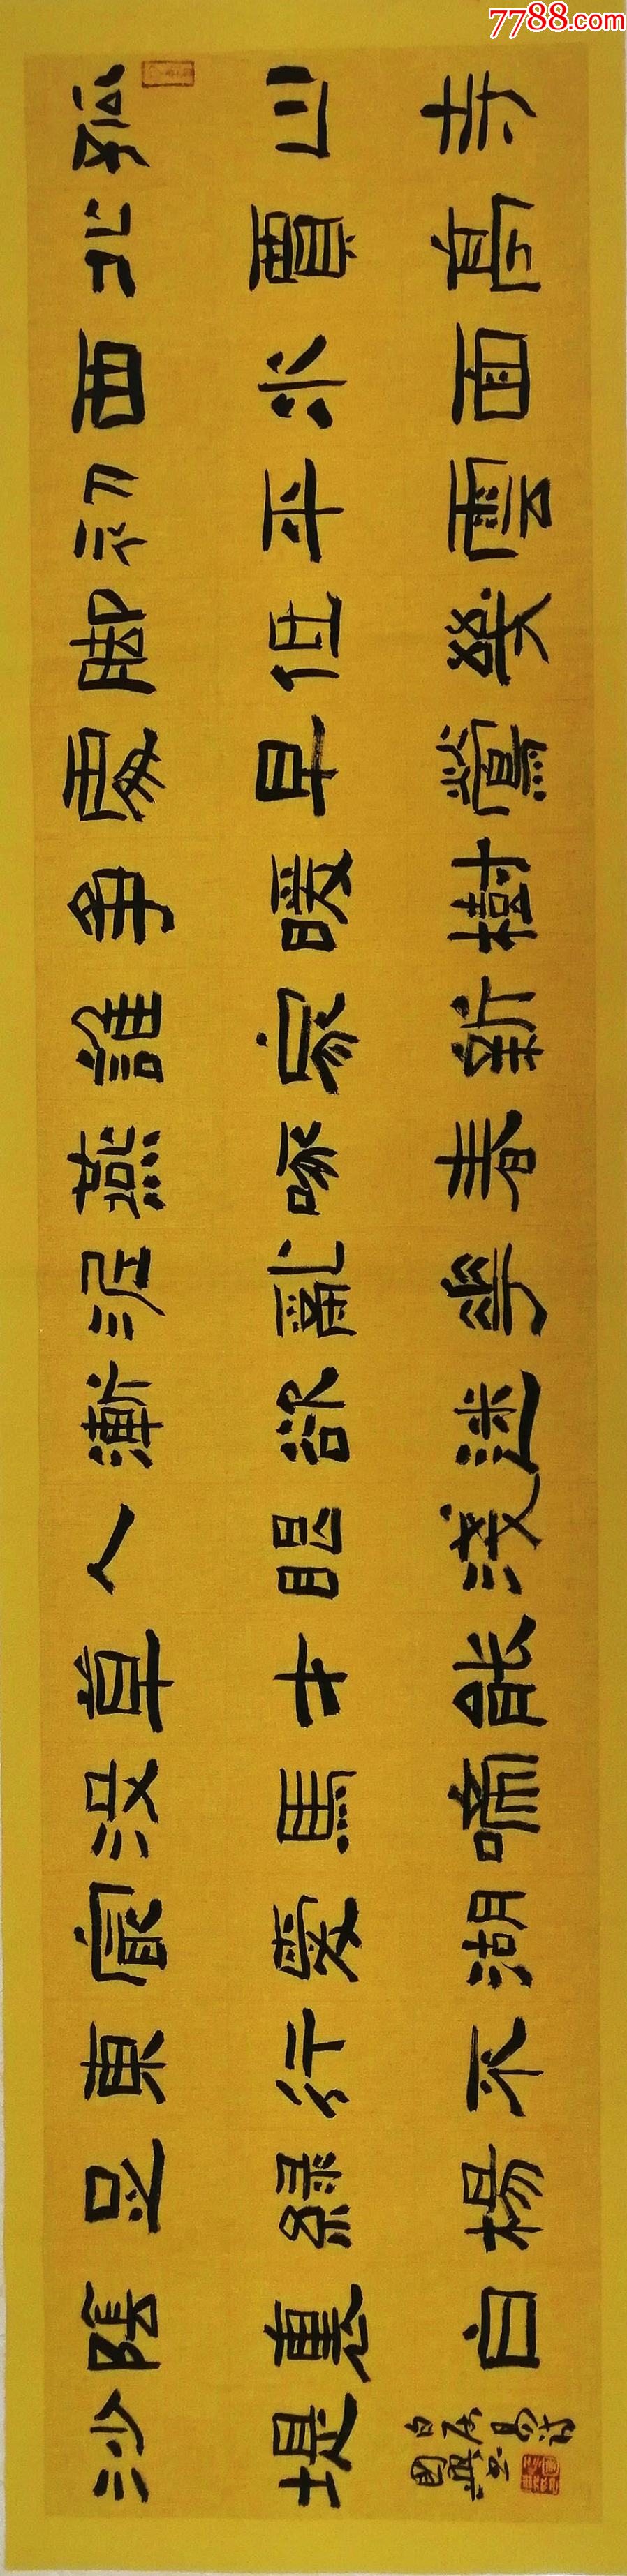 7788.com
孤山寺
北賈亭
西水面
初平雲
脚低幾
處早鶯
爭暖樹
誰家新
燕啄春
泥亂華
漸欲迷
人眼淺
草才能
沒馬啼
最愛湖
東行不
足綠楊
陰裏白
沙堤
白居易詩
國興